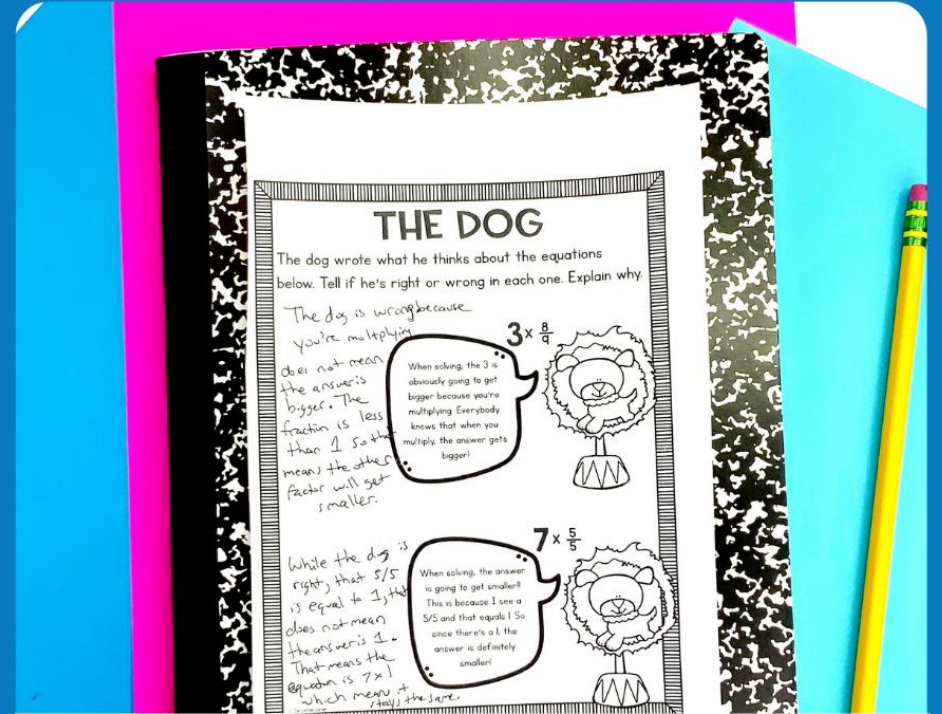 THE DOG
The dog wrote what he thinks about the equations
below. Tell if he's right or wrong in each one. Explain why.
The dog is wrong because
you're multplying
does not mean
the answer is
bigger. The
fraction is less
than 1 so that
means the other
factor will get
smaller.
3 x 8/9
When solving, the 3 is
obviously going to get
bigger because you're
multiplying. Everybody
knows that when you
multiply, the answer gets
bigger!
While the dog is
right, that 5/5
is equal to 1, that
does not mean
the answer is 1.
That means the
equation is 7x1
which means it
stays the same.
7 x 5/5
When solving, the answer
is going to get smaller!!
This is because I see a
5/5 and that equals 1. So
since there's a 1, the
answer is definitely
smaller!